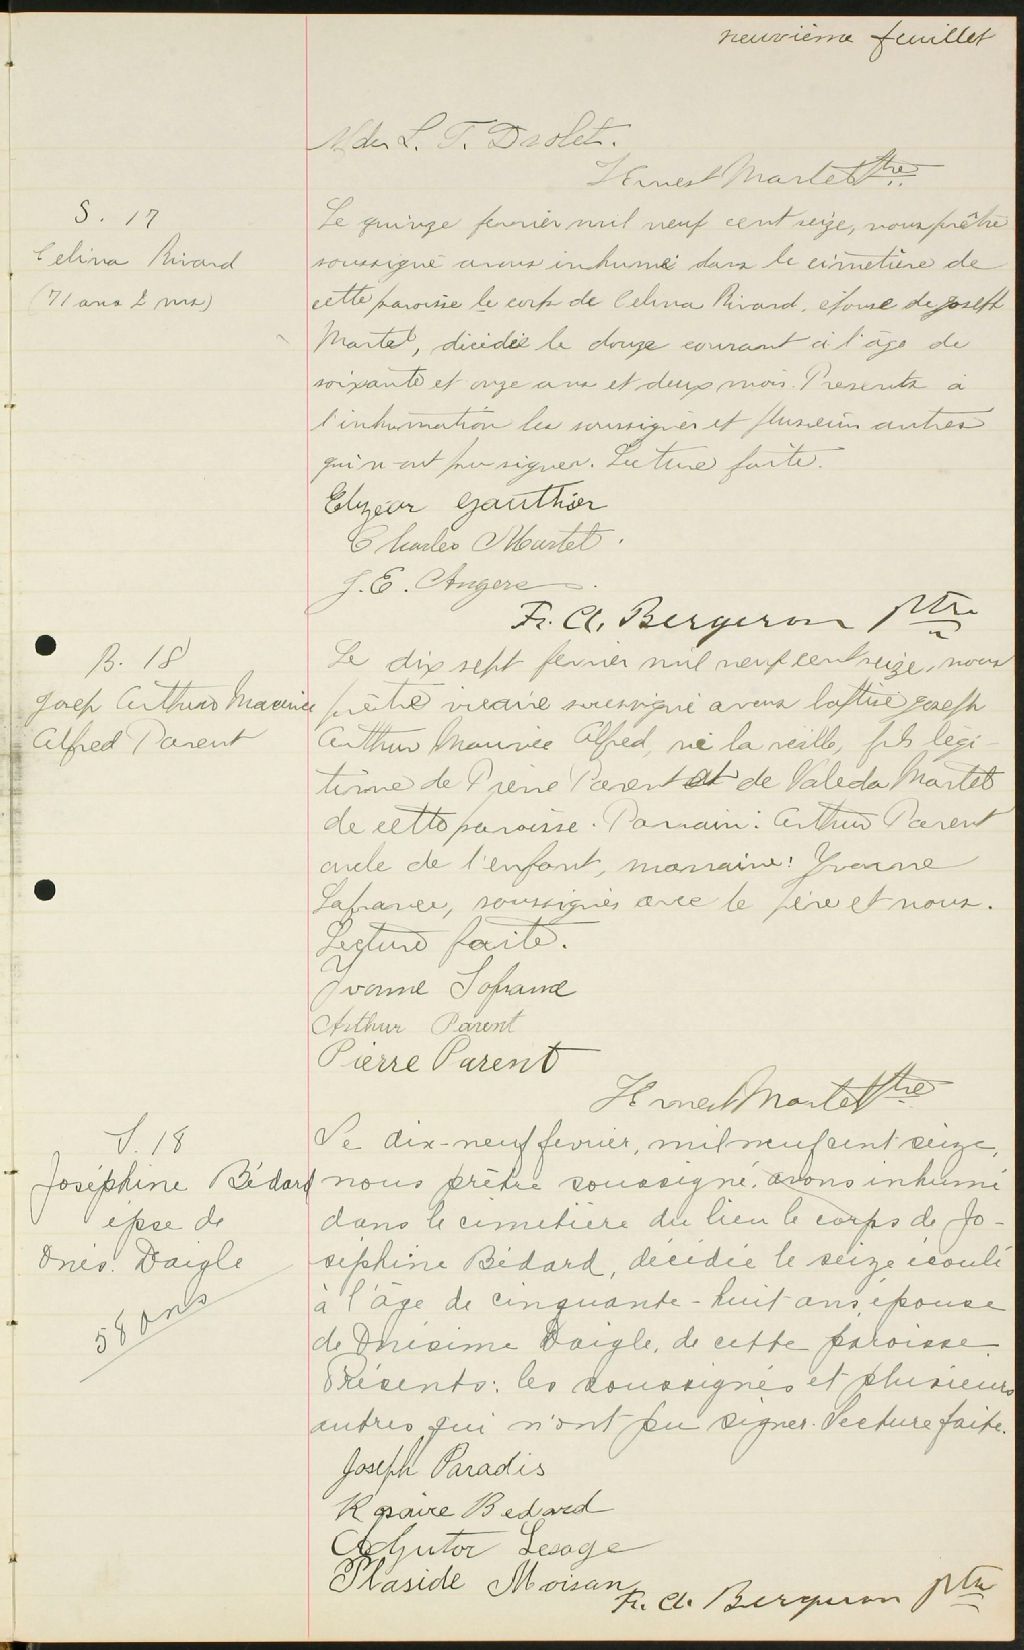 neuvième feuillet
Mde L. T. Drolet.
J Ernest Martel Ptre
S. 17
Celina Rivard
(71 ans 2 ms)
Le quinze fevrier mil neuf cent seize, nous prêtre
soussigné avons inhumé dans le cimetière de
cette paroisse le corps de Celina Rivard, épouse de Joseph
Martel, décédée le douze courant à l'âge de
soixante et onze ans et deux mois. Presents à
l'inhumation les soussignés et plusieurs autres
qui n'ont pu signer. Lecture faite.
Elzéar Gauthier
Charles Martel.
J. E. Angers.
Fr. Cl. Bergeron ptre
B. 18
Josep Arthur Maurice
Alfred Parent
Le dix sept fevrier mil neuf cent seize, nous
prêtre vicaire soussigné avons baptisé Joseph
Arthur Maurice Alfred, né la veille, fils légi-
time de Pierre Parent et de Valeda Martel
de cette paroisse. Parrain: Arthur Parent
oncle de l'enfant, marraine: Yvonne
Lafrance, soussignés avec le père et nous.
Lecture faite.
Yvonne Lafrance
Arthur Parent
Pierre Parent
J Ernest Martel Ptre
S. 18
Joséphine Bédard
épse de
Onés. Daigle
58 ans
Le dix-neuf fevrier, mil neuf cent seize,
nous prêtre soussigné, avons inhumé
dans le cimetière du lieu le corps de Jo-
séphine Bédard, décédée le seize écoulé
à l'âge de cinquante-huit ans, épouse
de Onésime Daigle, de cette paroisse.
Présents: les soussignés et plusieurs
autres qui n'ont pu signer. Lecture faite.
Joseph Paradis
Rosaire Bedard
Adjutor Lesage
Plaside Moisan
Fr. Cl. Bergeron ptre